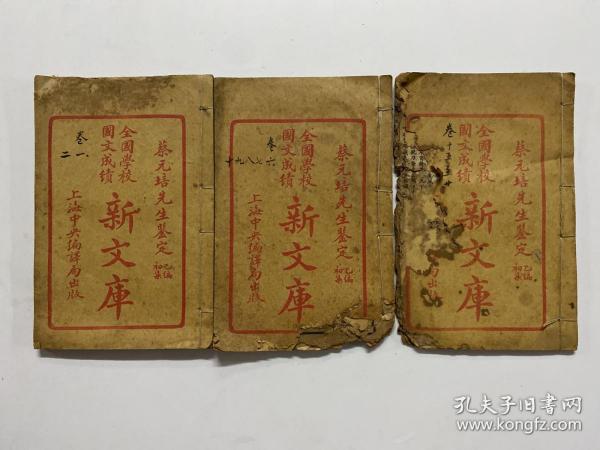 蔡元培先生鉴定
乙编
初集
全國學校
國文成績
新文庫
上海中央編譯局出版
卷一
二
蔡元培先生鉴定
乙编
初集
全國學校
國文成績
新文庫
上海中央編譯局出版
卷六
七八九十
蔡元培先生鉴定
乙编
初集
全國學校
國文成績
新文庫
局出版
孔夫子旧书网
www.kongfz.com